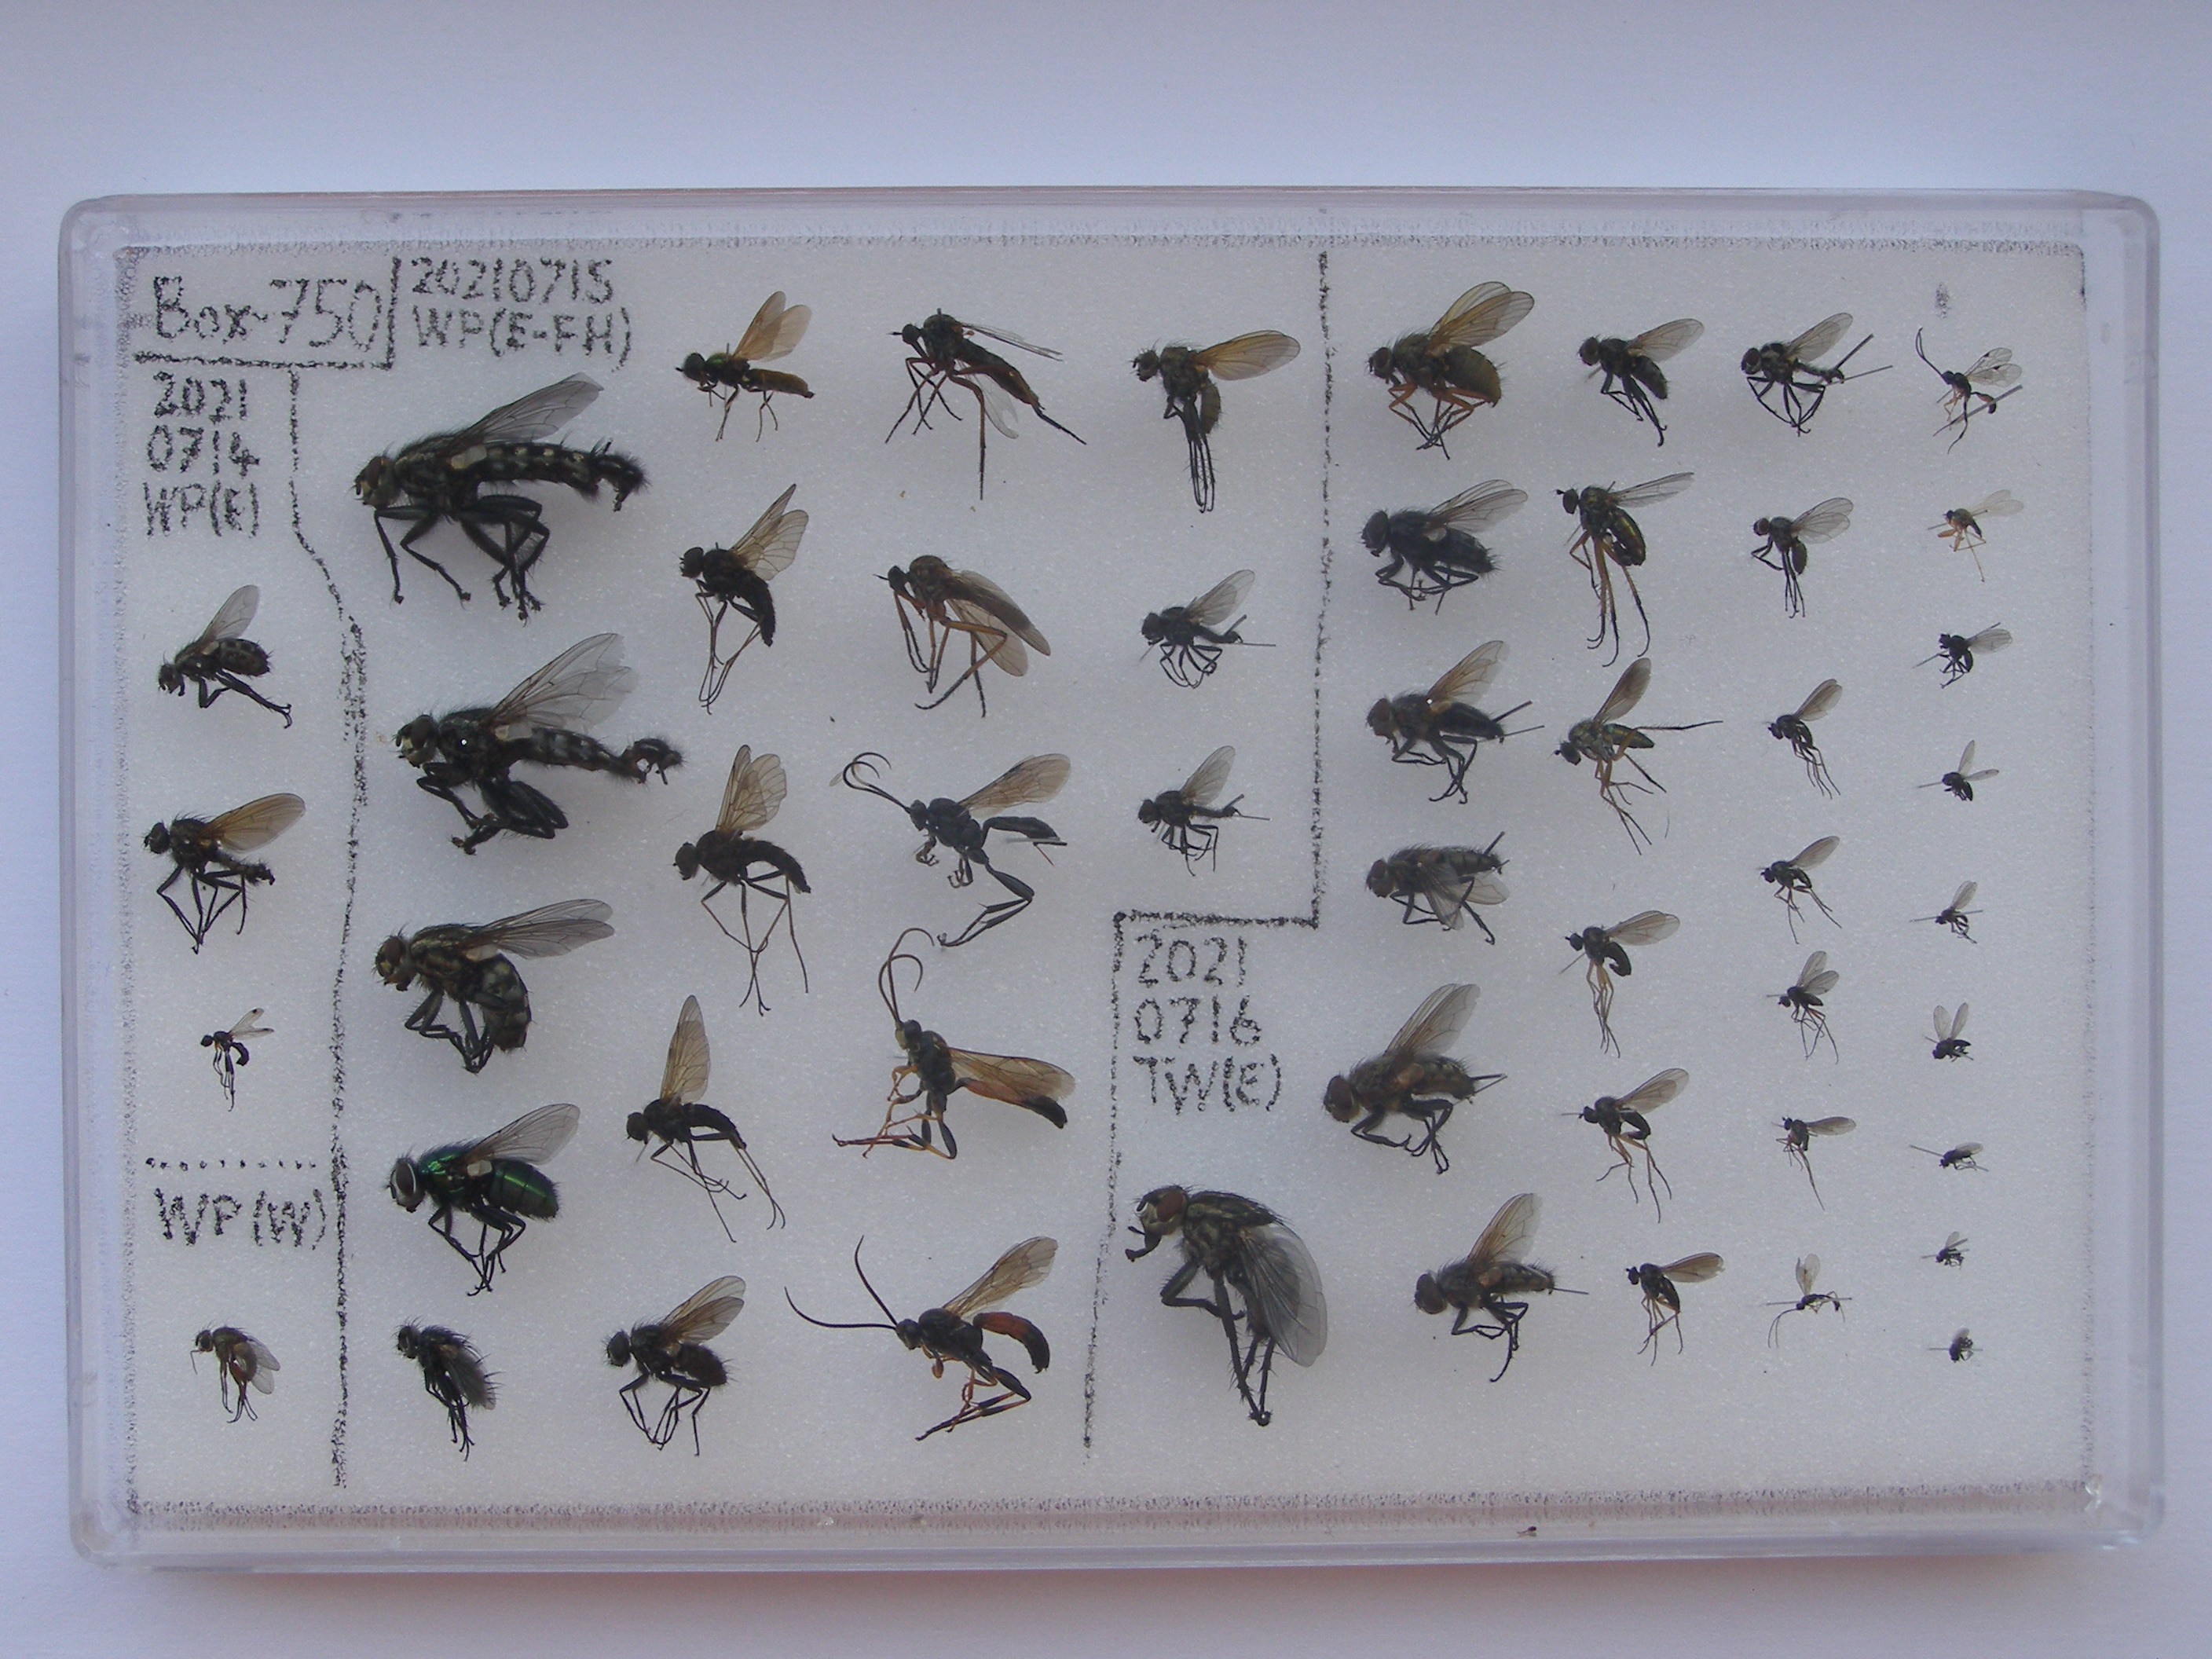 Box-750
20210715
WP(E-FH)
2021
0714
WP(E)
WP(W)
2021
0716
TW(E)